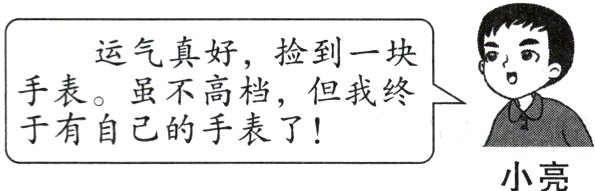 运气真好，捡到一块
手表。虽不高档，但我终
于有自己的手表了！
小亮